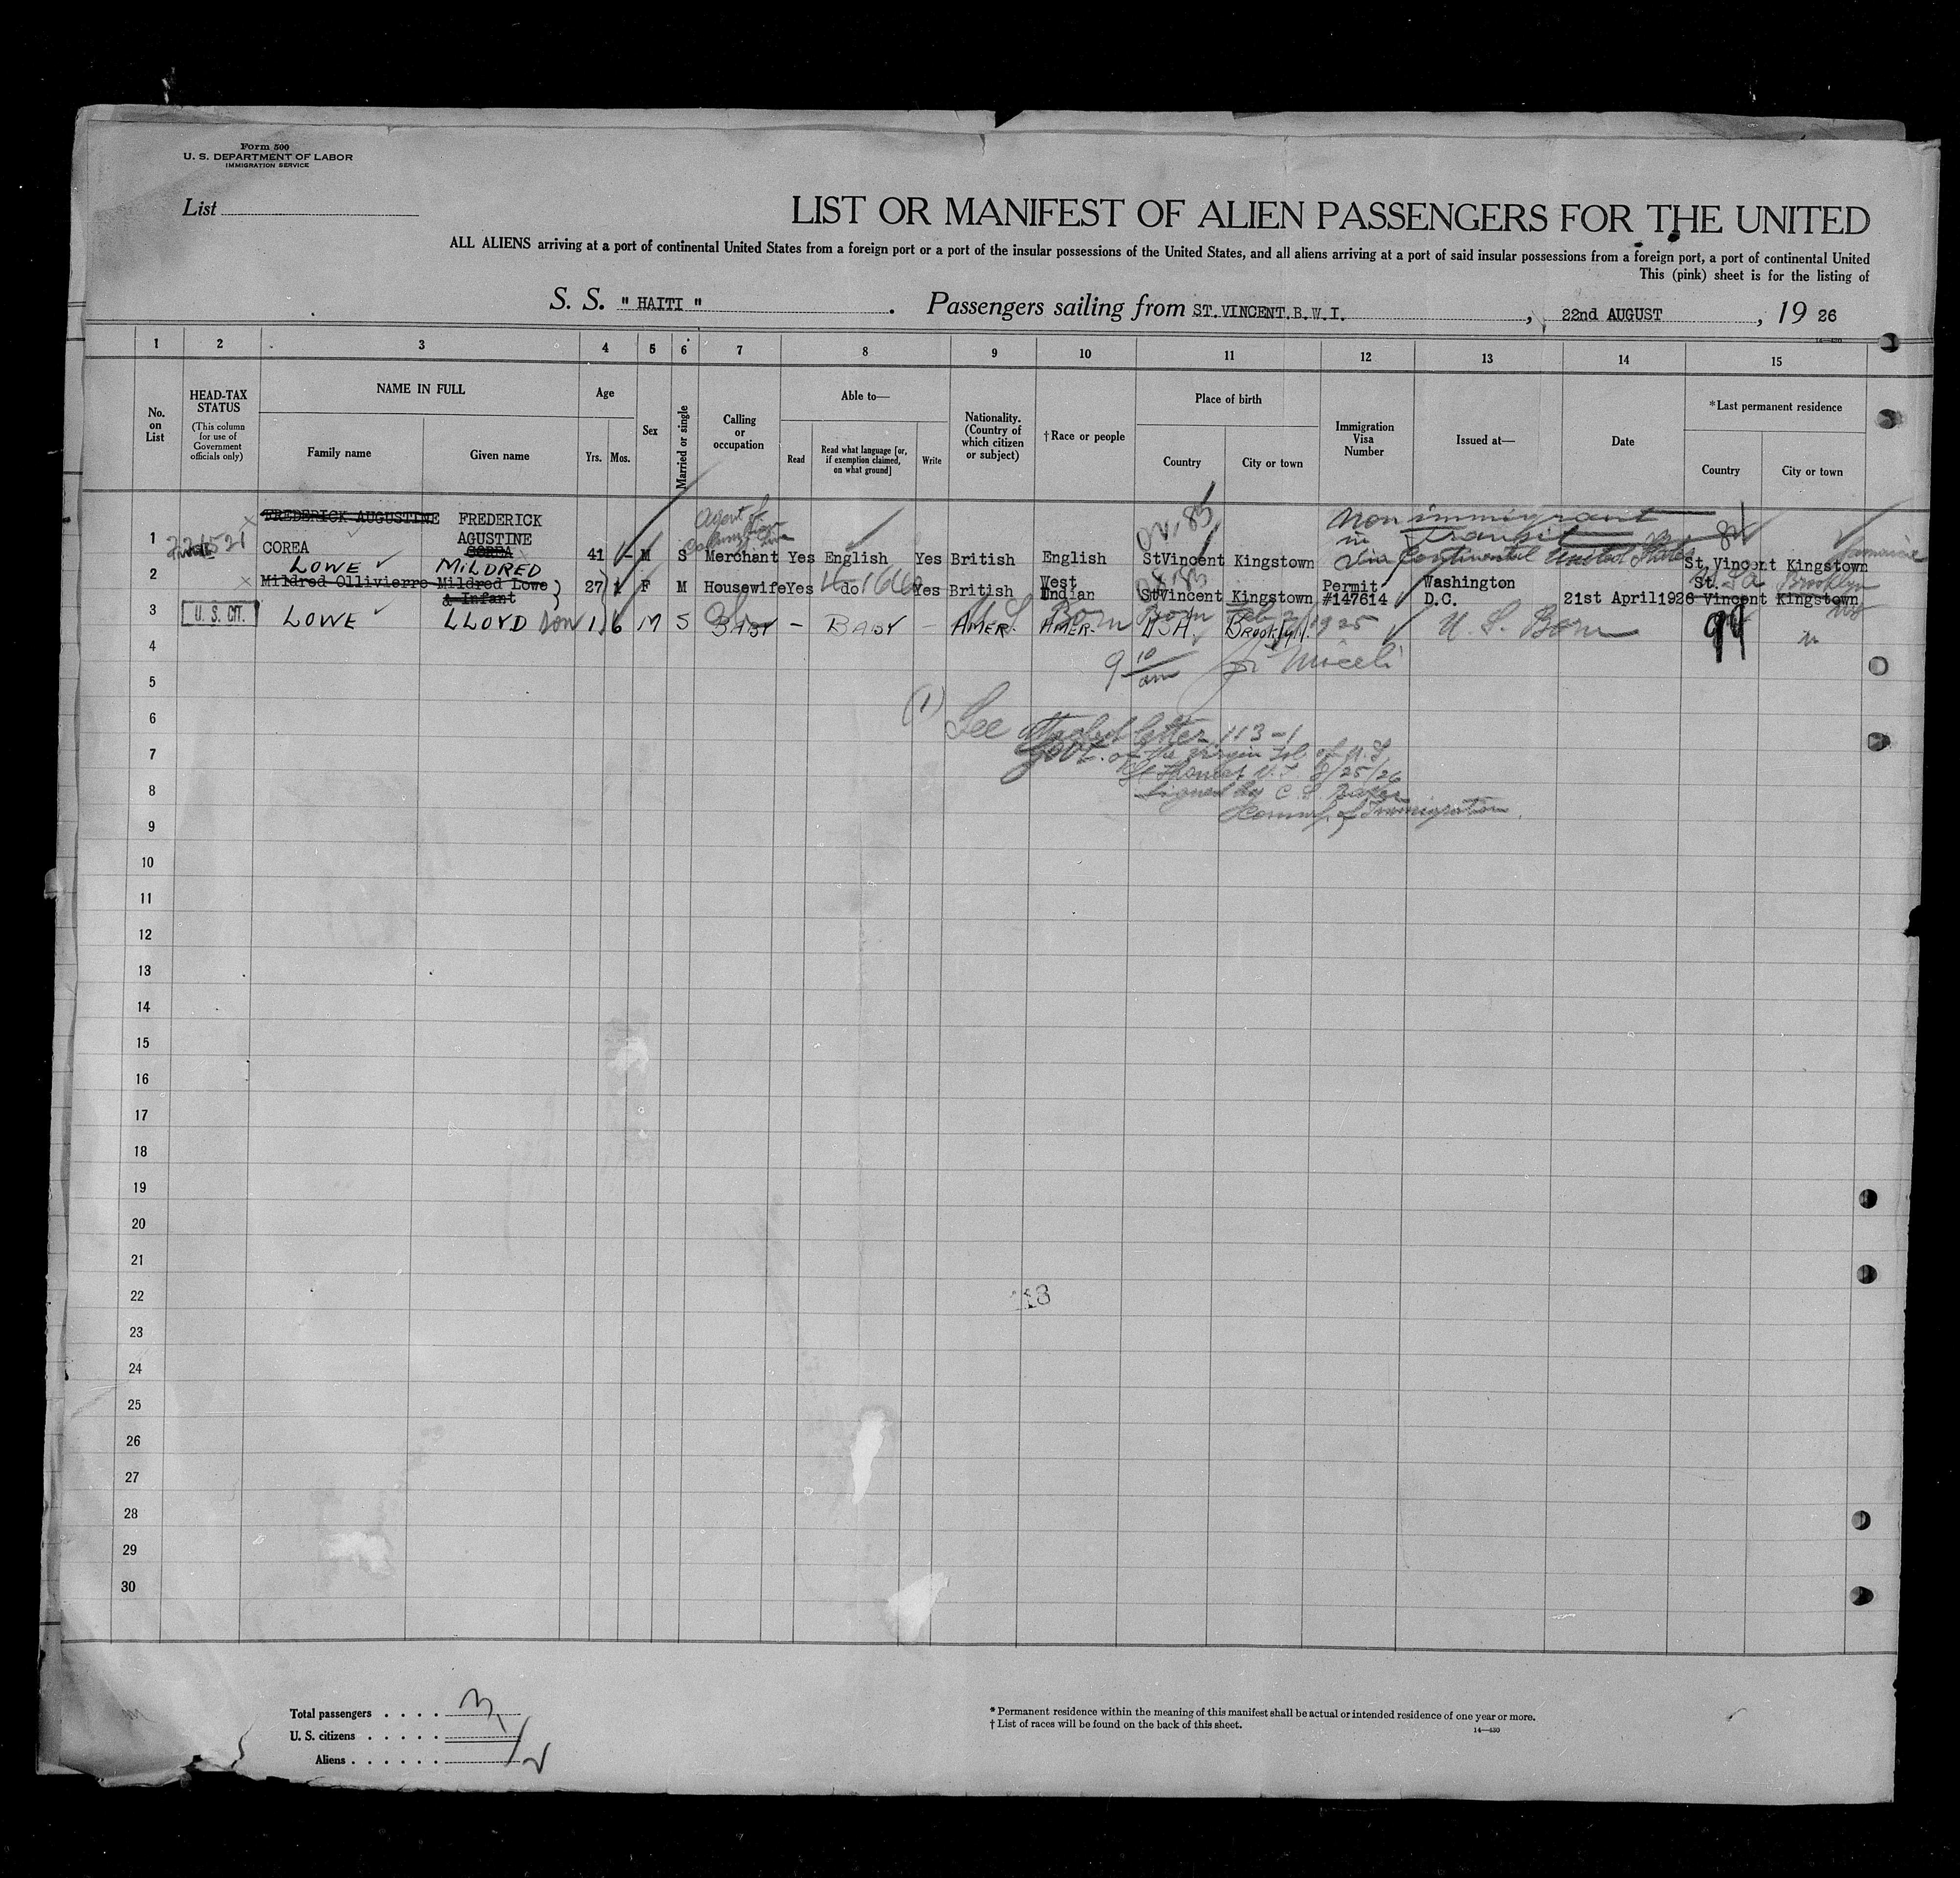 Form 500
U. S. DEPARTMENT OF LABOR
IMMIGRATION SERVICE
List
LIST OR MANIFEST OF ALIEN PASSENGERS FOR THE UNITED
ALL ALIENS arriving at a port of continental United States from a foreign port or a port of the insular possessions of the United States, and all aliens arriving at a port of said insular possessions from a foreign port, a port of continental United
This (pink) sheet is for the listing of
S. S. " HAITI " . Passengers sailing from ST.VINCENT.B.W.I. , 22nd AUGUST , 19 26
14—430
1 2 3 4 5 6 7 8 9 10 11 12 13 14 15
No. on List
HEAD-TAX STATUS
(This column for use of Government officials only)
NAME IN FULL
Family name
Given name
Age
Yrs.
Mos.
Sex
Married or single
Calling or occupation
Able to—
Read
Read what language [or, if exemption claimed, on what ground]
Write
Nationality. (Country of which citizen or subject)
†Race or people
Place of birth
Country
City or town
Immigration Visa Number
Issued at—
Date
*Last permanent residence
Country
City or town
FREDERICK AUGUSTINE FREDERICK
AGUSTINE
Non immigrant
in Transit
via Continental United States
1 COREA COREA 41 - M S Agent of Merchant Yes English Yes British English StVincent Kingstown St.Vincent Kingstown Jamaica
LOWE MILDRED
2 Mildred Ollivierre Mildred Lowe & Infant 27 1 F M Housewife Yes do Yes British West Indian StVincent Kingstown Permit #147614 Washington D.C. 21st April 1926 St. Vincent Kingstown
U.S.A. Brooklyn NY
3 U. S. CIT. LOWE LLOYD son 1 6 M S BABY - BABY - AMER. AMER. USA Brooklyn. U. S. Born
U S Born Born 1925
4
9 10/am
5
6 (1) See attached letter 113-1
7 Govt. of the Virgin Isl of U.S.
St Thomas V.I 8/25/26
8 Signed by C. S. Baker
Comm. of Immigration
9
10
11
12
13
14
15
16
17
18
19
20
21
22
23
24
25
26
27
28
29
30
Total passengers . . . . 3
U. S. citizens . . . . . 1
Aliens . . . . . . 2
* Permanent residence within the meaning of this manifest shall be actual or intended residence of one year or more.
† List of races will be found on the back of this sheet.
14—430